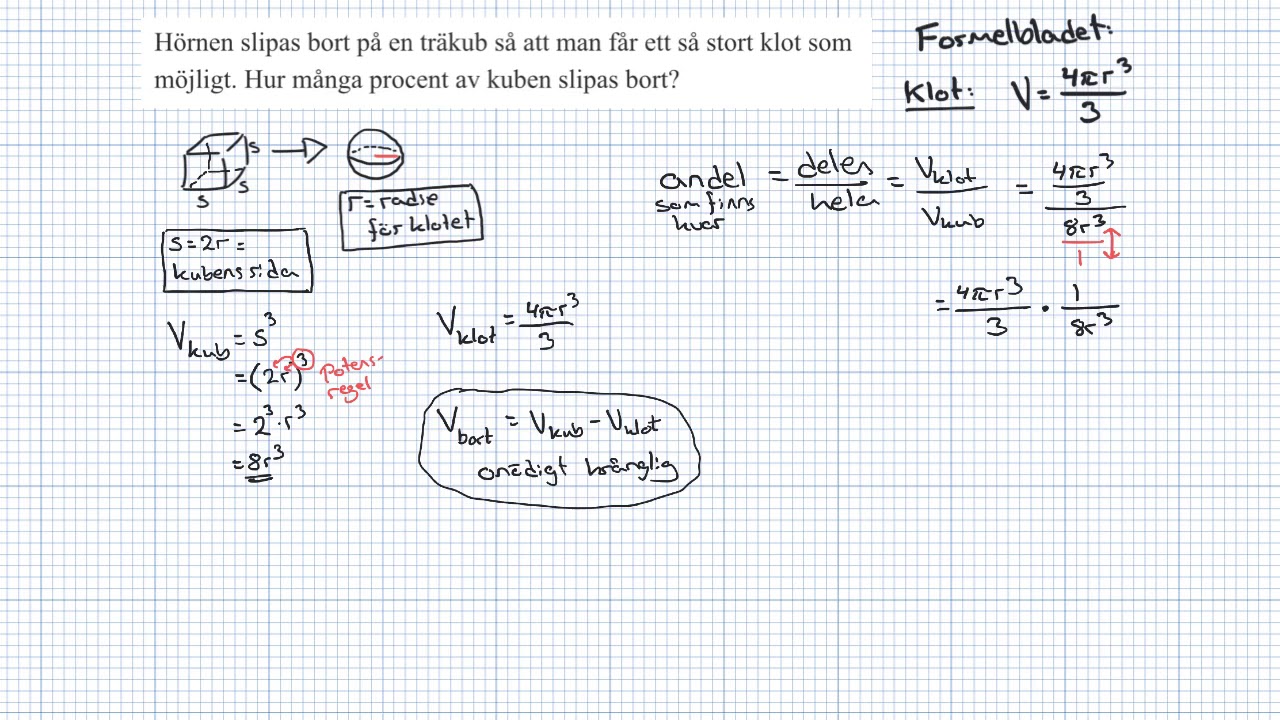 Hörnen slipas bort på en träkub så att man får ett så stort klot som
möjligt. Hur många procent av kuben slipas bort?
Formelbladet:
Klot: V = 4πr³/3
s
s
s
r = radie
för klotet
s = 2r =
kubens sida
V_kub = s³
= (2r)³ Potens-
regel
= 2³ · r³
= 8r³
V_klot = 4πr³/3
V_bort = V_kub - V_klot
onödigt krånglig
andel = delen/hela = V_klot/V_kub = (4πr³/3)/(8r³/1)
som finns
kvar
= 4πr³/3 · 1/8r³